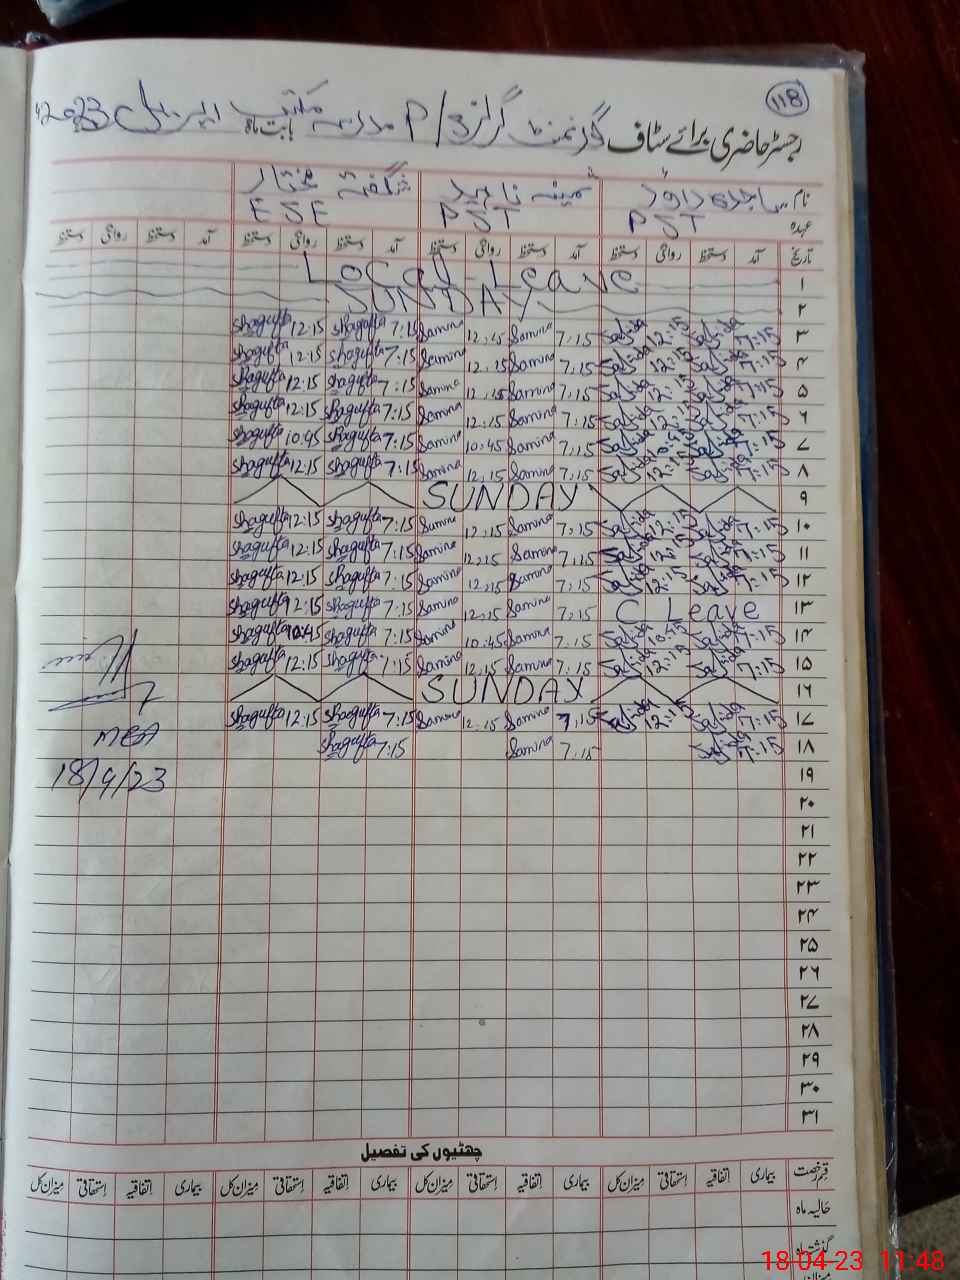 118
رجسٹر حاضری برائے سٹاف گورنمنٹ گرلز P/S مدرسہ مکتب بابت ماہ اپریل 2023
نام ساجدہ داؤد ثمینہ ناہید شگفتہ مختار
عہدہ PST PST ESE
تاریخ آمد دستخط روانگی دستخط آمد دستخط روانگی دستخط آمد دستخط روانگی دستخط آمد دستخط روانگی دستخط
۱ Local Leave
۲ SUNDAY
۳ 7:15 Sajida 12:15 Sajida 7:15 Samina 12:15 Samina 7:15 Shagufta 12:15 Shagufta
۴ 7:15 Sajida 12:15 Sajida 7:15 Samina 12:15 Samina 7:15 Shagufta 12:15 Shagufta
۵ 7:15 Sajida 12:15 Sajida 7:15 Samina 12:15 Samina 7:15 Shagufta 12:15 Shagufta
۶ 7:15 Sajida 12:15 Sajida 7:15 Samina 12:15 Samina 7:15 Shagufta 12:15 Shagufta
۷ 7:15 Sajida 10:45 Sajida 7:15 Samina 10:45 Samina 7:15 Shagufta 10:45 Shagufta
۸ 7:15 Sajida 12:15 Sajida 7:15 Samina 12:15 Samina 7:15 Shagufta 12:15 Shagufta
۹ SUNDAY
۱۰ 7:15 Sajida 12:15 Sajida 7:15 Samina 12:15 Samina 7:15 Shagufta 12:15 Shagufta
۱۱ 7:15 Sajida 12:15 Sajida 7:15 Samina 12:15 Samina 7:15 Shagufta 12:15 Shagufta
۱۲ 7:15 Sajida 12:15 Sajida 7:15 Samina 12:15 Samina 7:15 Shagufta 12:15 Shagufta
۱۳ C Leave 7:15 Samina 12:15 Samina 7:15 Shagufta 12:15 Shagufta
۱۴ 7:15 Sajida 10:45 Sajida 7:15 Samina 10:45 Samina 7:15 Shagufta 10:45 Shagufta
۱۵ 7:15 Sajida 12:15 Sajida 7:15 Samina 12:15 Samina 7:15 Shagufta 12:15 Shagufta
۱۶ SUNDAY
۱۷ 7:15 Sajida 12:15 Sajida 7:15 Samina 12:15 Samina 7:15 Shagufta 12:15 Shagufta
MEA
۱۸ 7:15 Sajida 7:15 Samina 7:15 Shagufta
18/4/23
۱۹
۲۰
۲۱
۲۲
۲۳
۲۴
۲۵
۲۶
۲۷
۲۸
۲۹
۳۰
۳۱
چھٹیوں کی تفصیل
قسم رخصت بیماری اتفاقیہ استحقاقی میزان کل بیماری اتفاقیہ استحقاقی میزان کل بیماری اتفاقیہ استحقاقی میزان کل بیماری اتفاقیہ استحقاقی میزان کل
حالیہ ماہ
گذشتہ ماہ
18-04-23 11:48